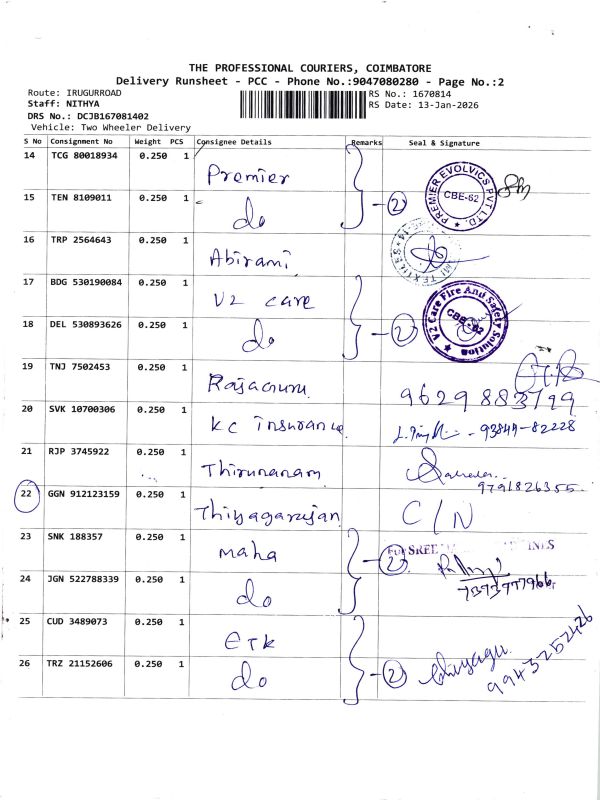 THE PROFESSIONAL COURIERS, COIMBATORE
Delivery Runsheet - PCC - Phone No.:9047080280 - Page No.:2
Route: IRUGURROAD
RS No.: 1670814
Staff: NITHYA
RS Date: 13-Jan-2026
DRS No.: DCJB167081402
Vehicle: Two Wheeler Delivery
S No Consignment No Weight PCS Consignee Details Remarks Seal & Signature
14 TCG 80018934 0.250 1 Premier
PREMIER EVOLVICS PVT LTD. CBE-62
15 TEN 8109011 0.250 1 do 2
16 TRP 2564643 0.250 1 Abirami
17 BDG 530190084 0.250 1 V2 care
V2 Care Fire And Safety Solution CBE-62
18 DEL 530893626 0.250 1 do 2
19 TNJ 7502453 0.250 1 Rajaguru
9629883799
20 SVK 10700306 0.250 1 KC insurance
93849-82228
21 RJP 3745922 0.250 1 Thirunanam
9791826355
22 GGN 912123159 0.250 1 Thiyagarajan C/N
23 SNK 188357 0.250 1 maha 2
For SREE
7393977966
24 JGN 522788339 0.250 1 do
25 CUD 3489073 0.250 1 ETK
26 TRZ 21152606 0.250 1 do 2
9943252426